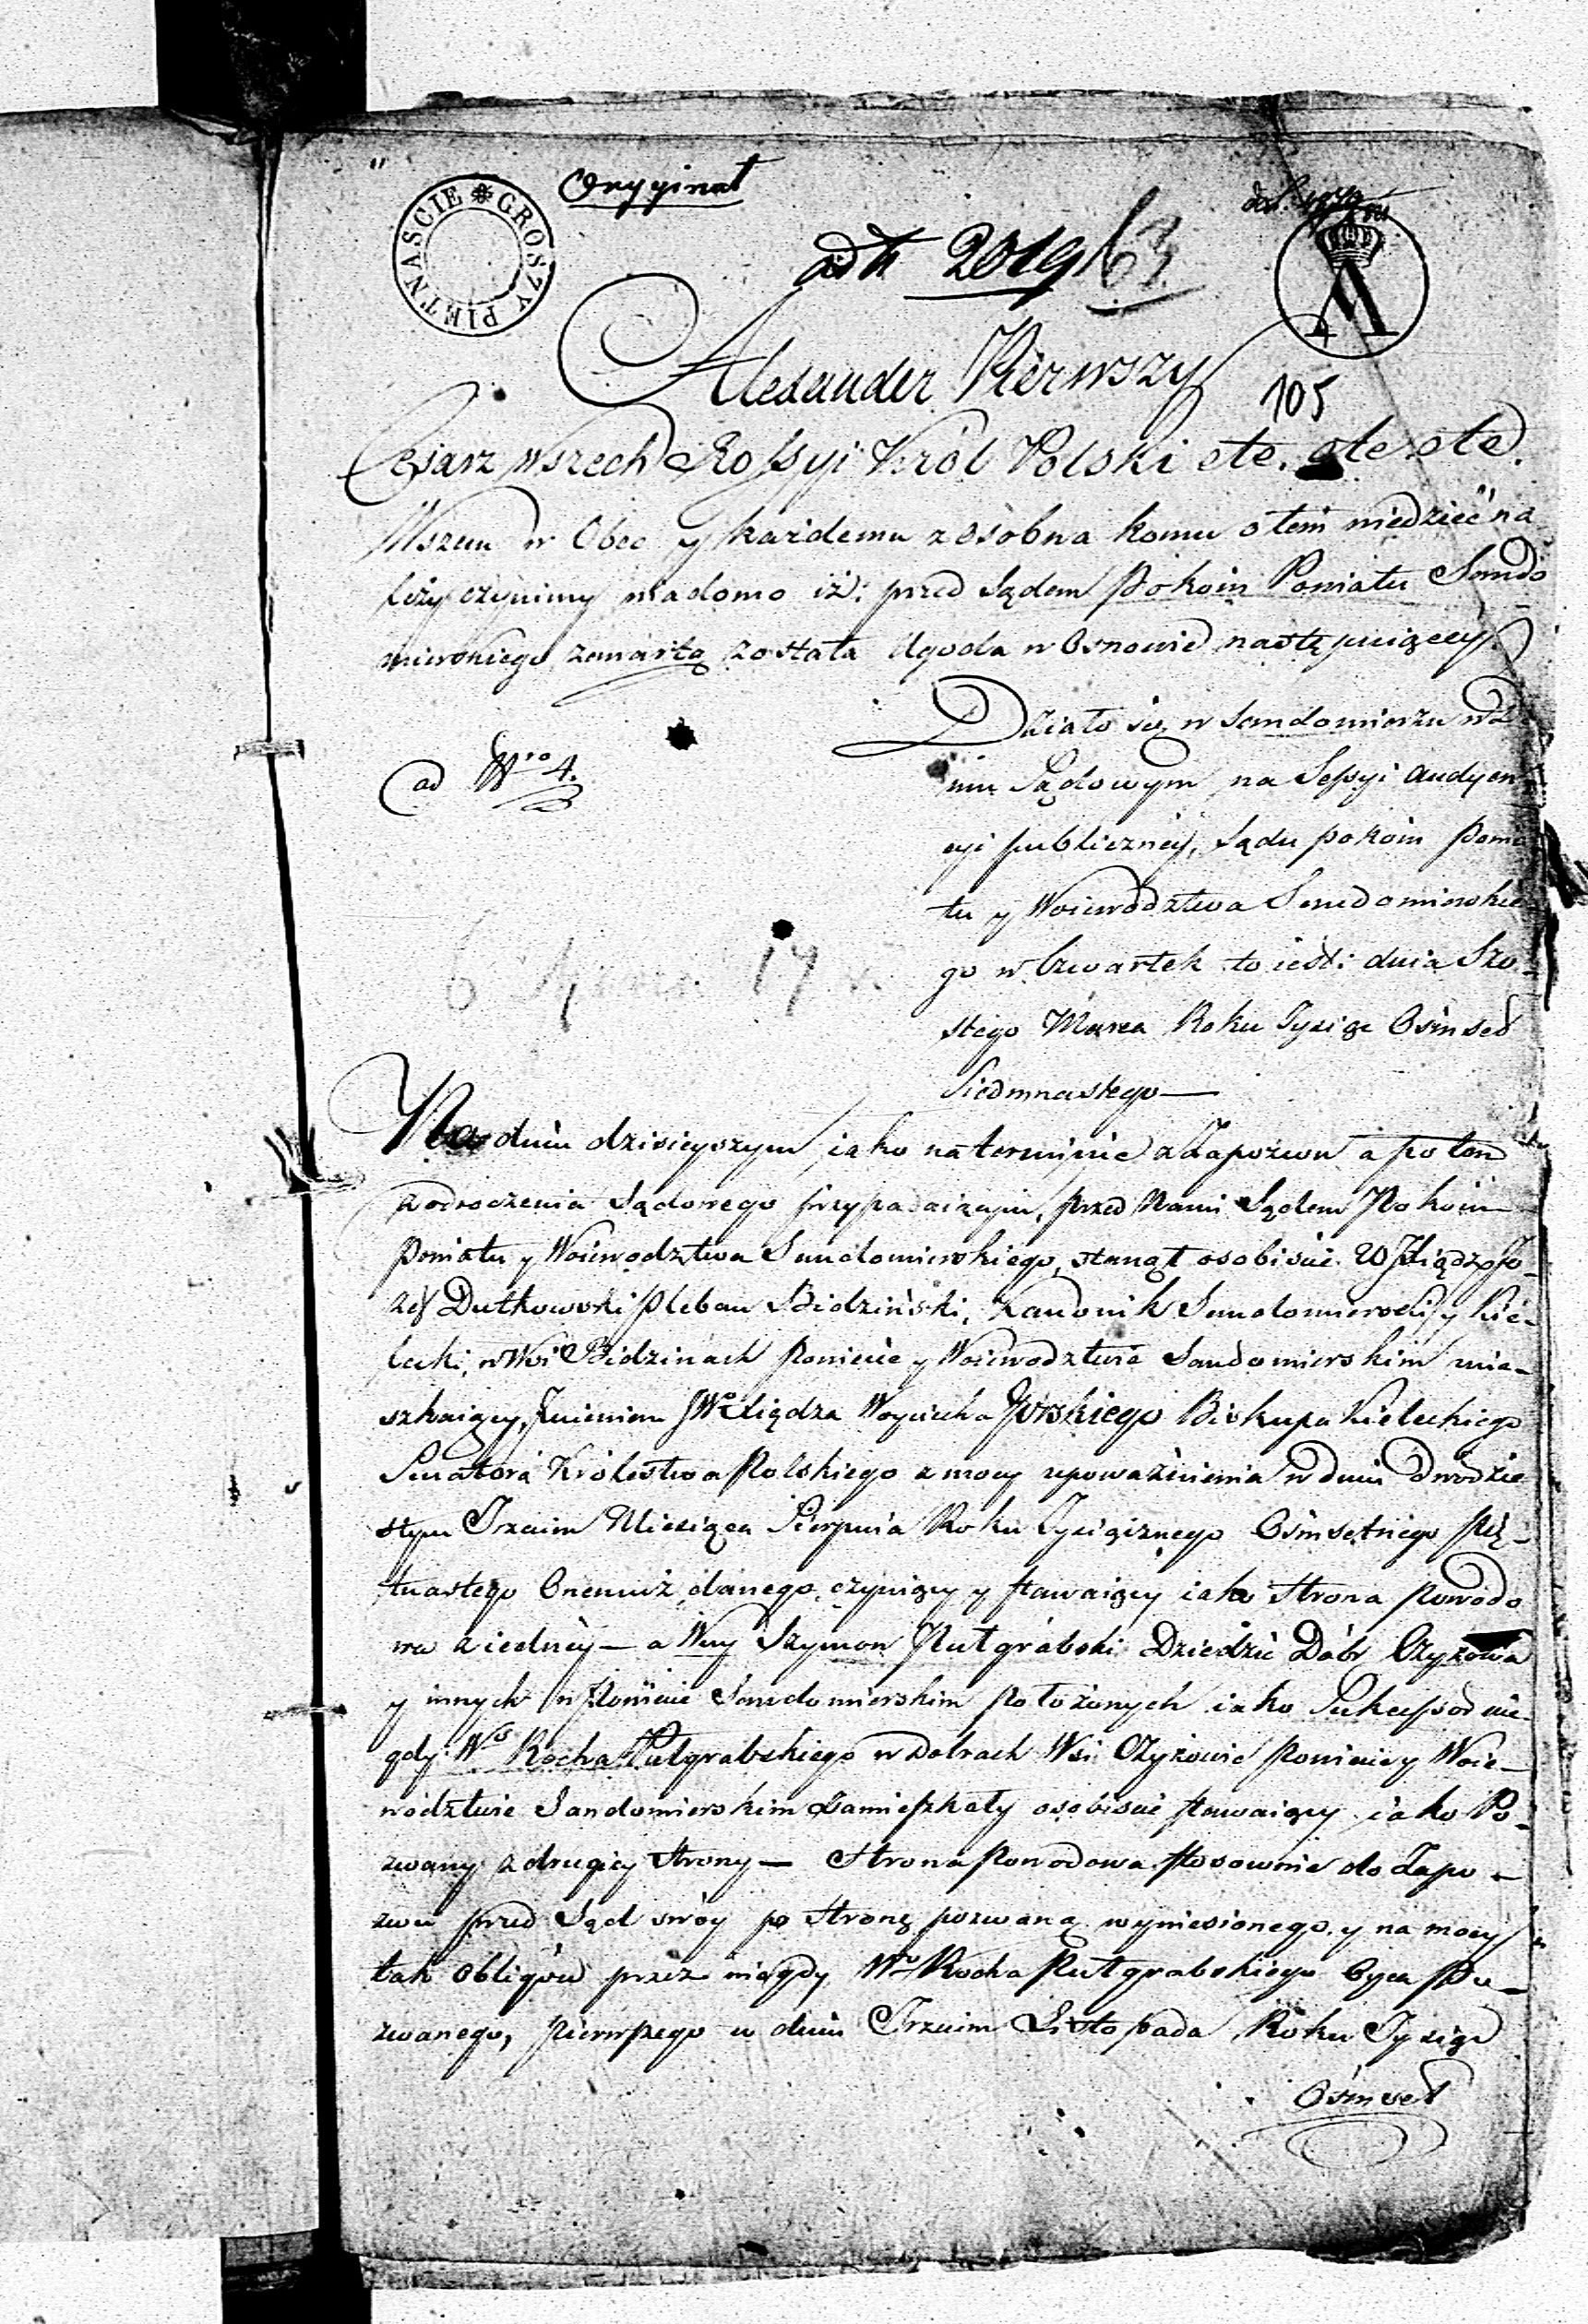 Oryginał
GROSZY PIETNASCIE
ad № 2019
63
105
Alexander Pierwszy
Cesarz Wszech Rossyi Król Polski etc. etc. etc.
Wszem w Obec y każdemu z osobna komu o tem wiedzieć na
leży czynimy wiadomo iż: przed Sądem Pokoiu Powiatu Sando
mierskiego zawarta została Ugoda w Osnowie następuiącey.
ad Nro 4.
Działo się w Sandomierzu w Do
mu Sądowym na Sessyi Audyen
cyi publiczney, Sądu pokoiu Powia
tu y Woiewodztwa Sandomierskie
go w Czwartek to iest: dnia Szo-
stego Marca Roku Tysiąc Ośmset
Siedmnastego —
6 Marca 17
Na dniu dzisieyszym iako na terminie z Zapozwu a potem
z odroczenia Sądowego przypadaiącym, przed Nami Sądem Pokoiu
Powiatu y Woiewodztwa Sandomierskiego, stanął osobiście W Xiądz Jó-
zef Dutkowski Pleban Bidziński, Kanonik Sandomierski y Kie-
lecki, w Wsi Bidzinach Powiecie y Woiewodztwie Sandomierskim mie-
szkaiący, Imieniem JWo Xiędza Woyciecha Gorskiego Biskupa Kieleckiego
Senatora Królestwa Polskiego z mocy upoważnienia w dniu Dwódzie
stym Trzecim Miesiąca Sierpnia Roku Tysiącznego Ośmsetnego Pię-
tnastego Onemuż danego, czyniący y stawaiący iako Strona Powodo
wa z iedney — a Wny Szymon Putgrabski Dziedzic Dóbr Czyżowa
y innych w Powiecie Sandomierskim położonych iako Sukcessor nie-
gdy Wo Rocha Putgrabskiego w Dobrach Wsi Czyżowie Powiecie y Woie-
wodztwie Sandomierskim Zamieszkały osobiście stawaiący iako Po-
zwany z drugiey Strony — Strona Powodowa stosownie do Zapo-
zwu przed Sąd swóy po Stronę pozwaną wyniesionego, y na mocy
tak Obligów przez niegdy Wo Rocha Putgrabskiego Oyca Po-
zwanego, pierwszego w dniu Trzecim Listopada Roku Tysiąc
Ośmset